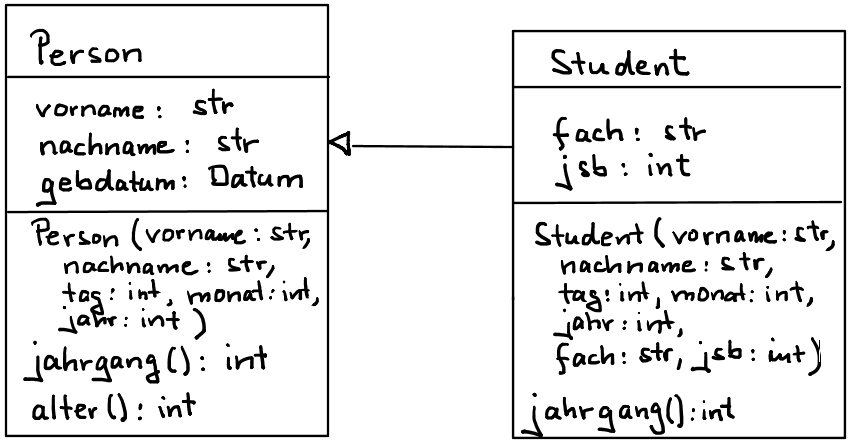 Person
vorname: str
nachname: str
gebdatum: Datum
Person(vorname: str,
nachname: str,
tag: int, monat: int,
jahr: int)
jahrgang(): int
alter(): int
Student
fach: str
jsb: int
Student(vorname: str,
nachname: str,
tag: int, monat: int,
jahr: int,
fach: str, jsb: int)
jahrgang(): int